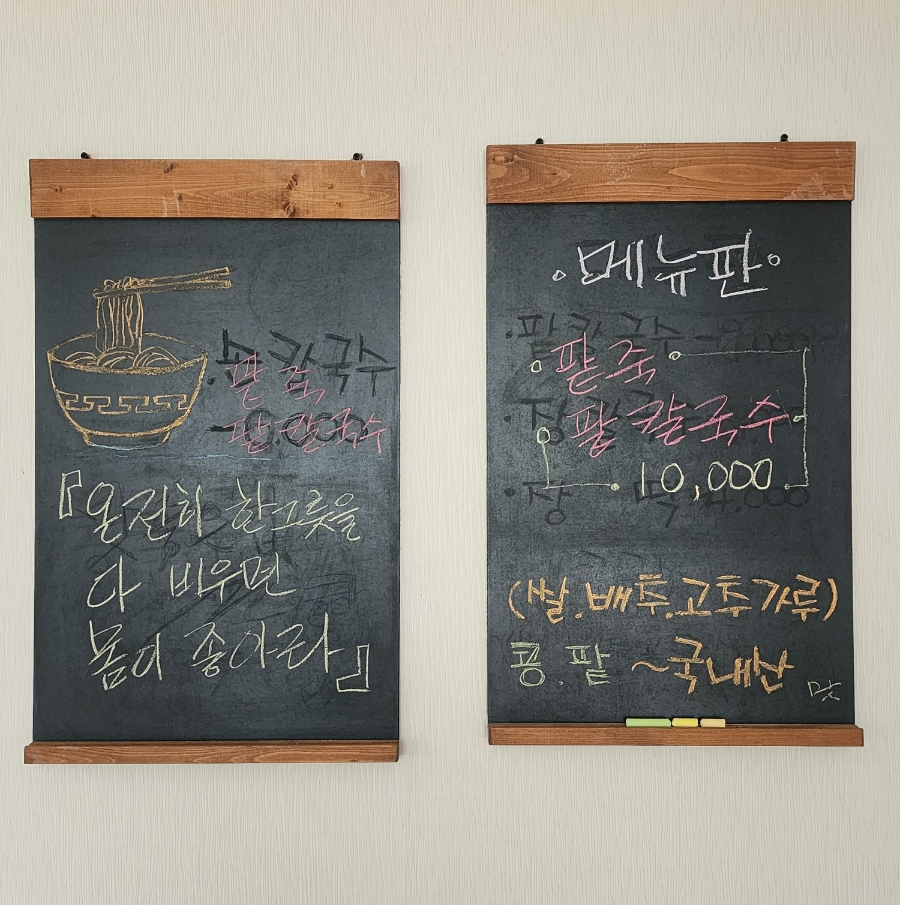 팥 죽
팥 칼국수
『온전히 한그릇을
다 비우면
몸이 좋아라』
메뉴판
팥죽
팥 칼국수
10,000
(쌀.배추.고추가루)
콩.팥 ~국내산
맛